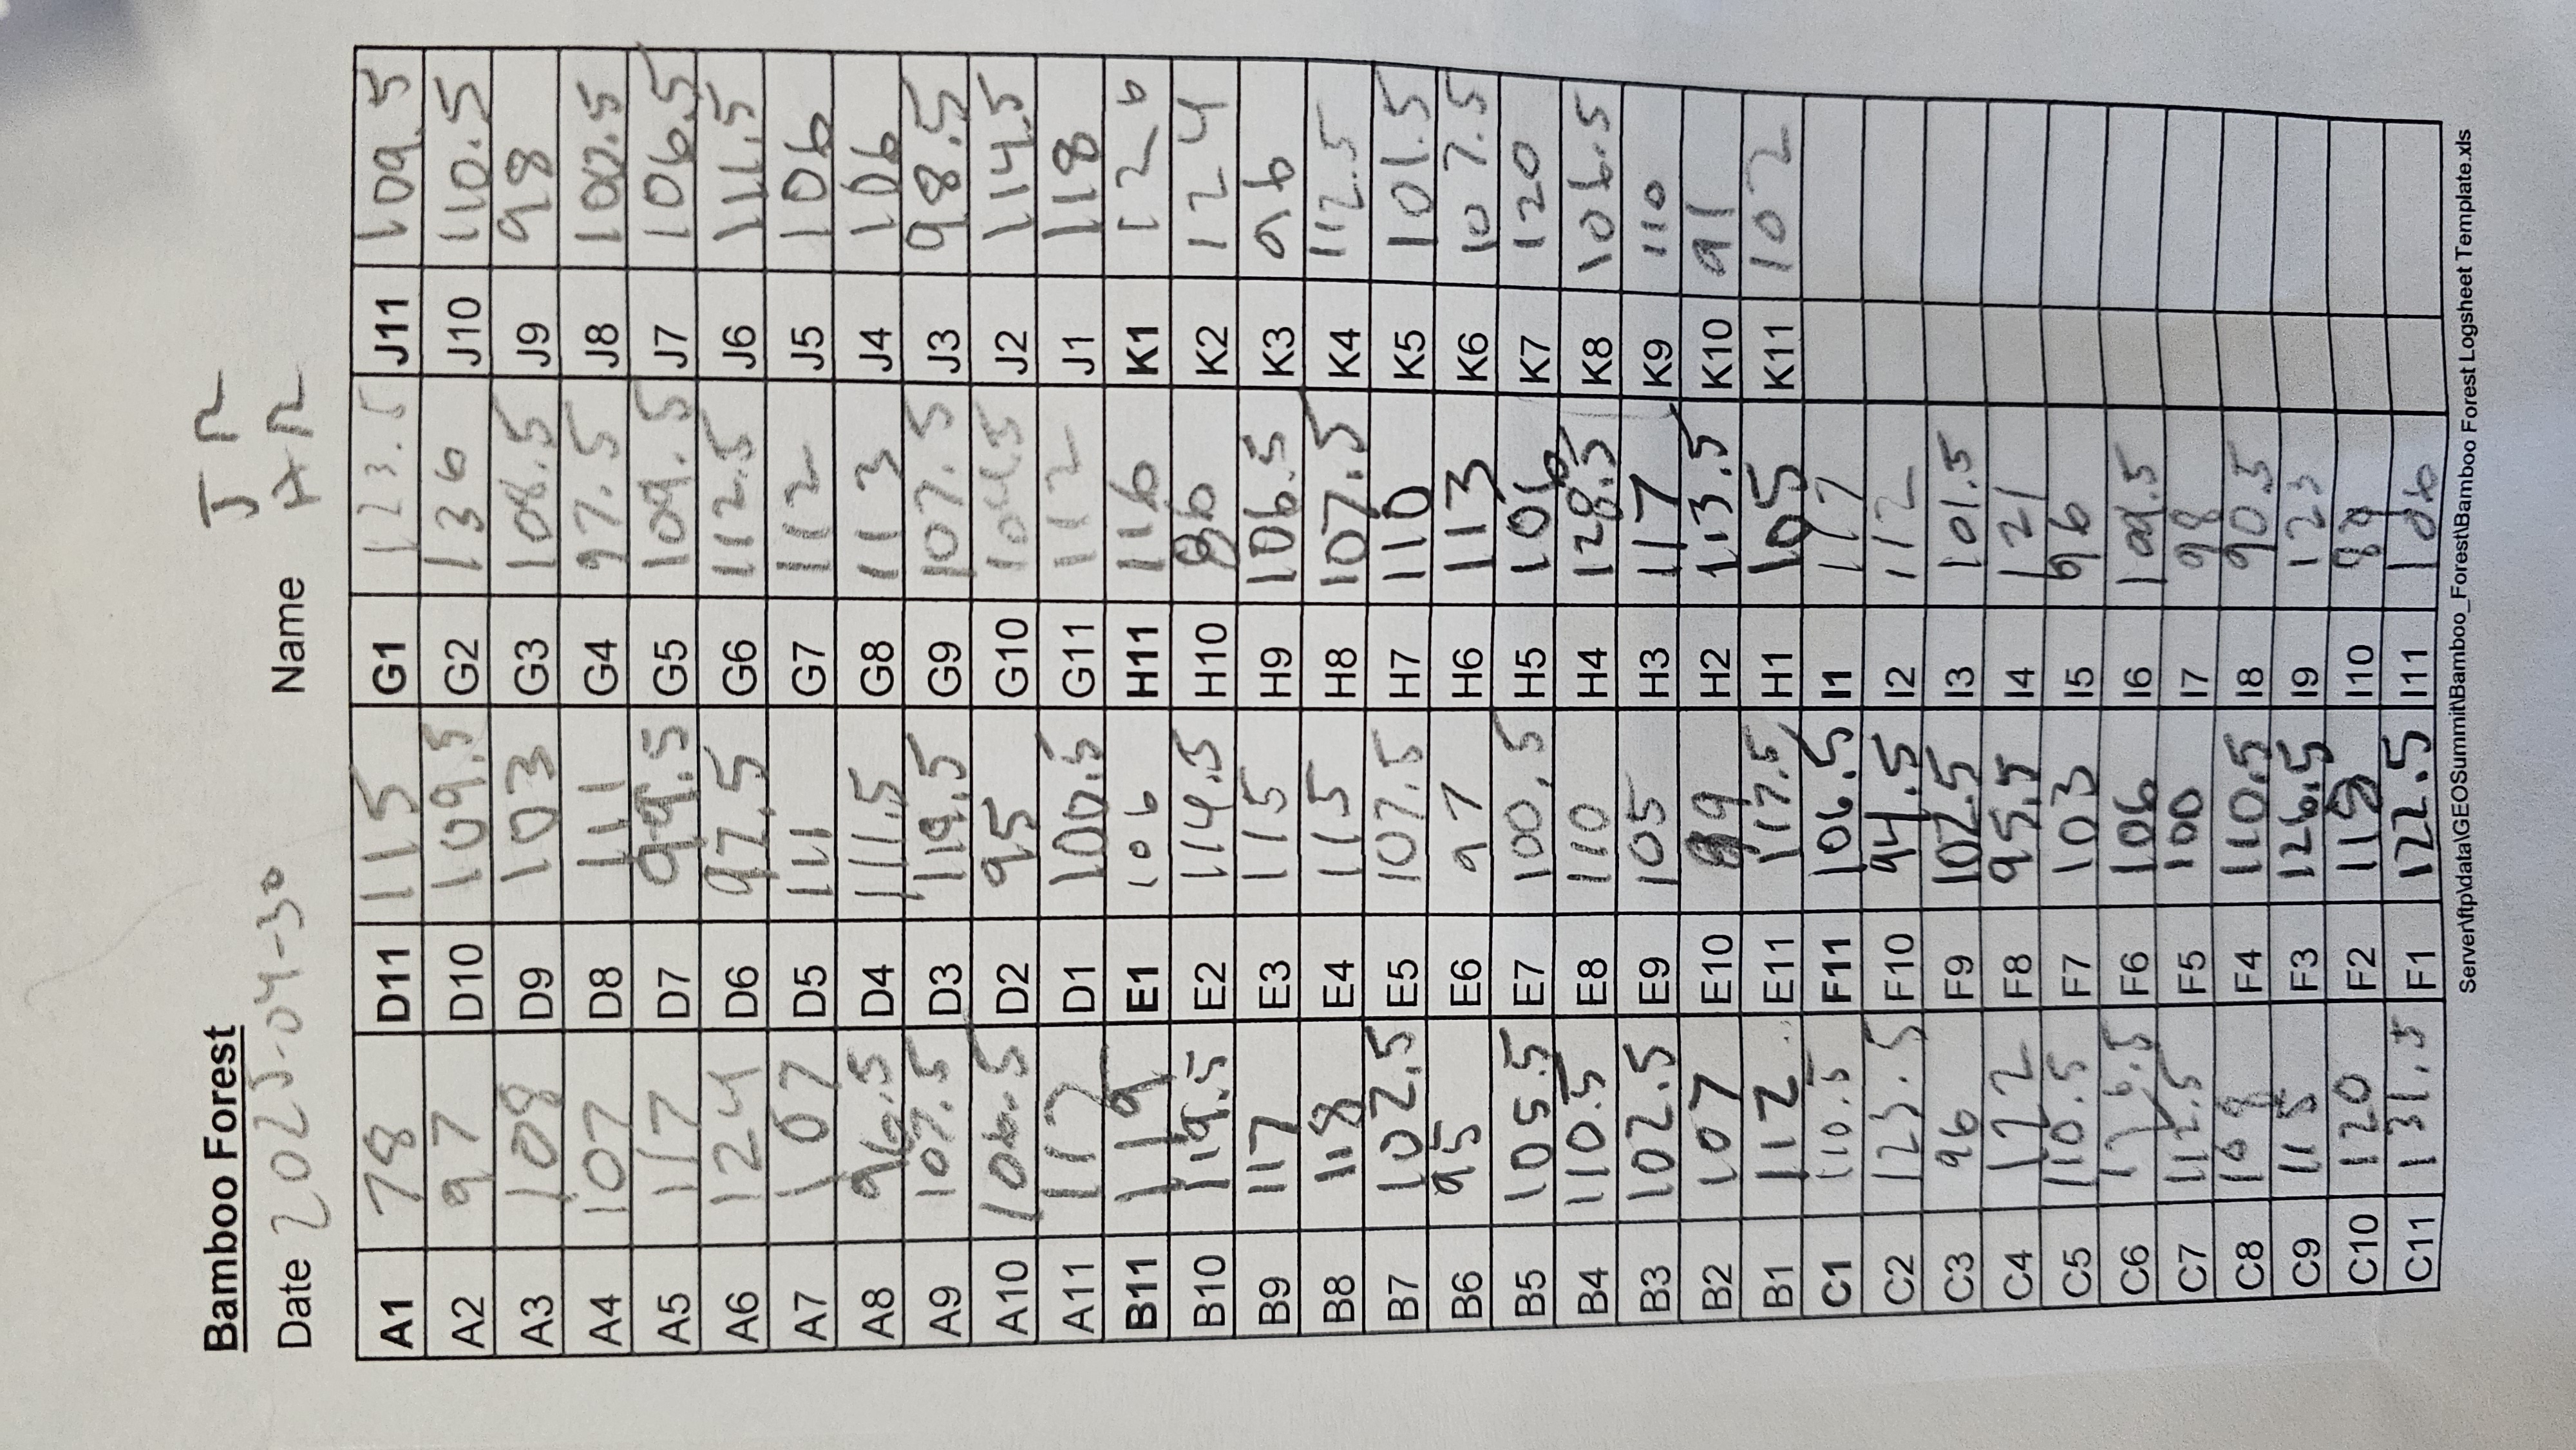 Bamboo Forest
Date 2025-04-30 Name JR
HR
A1 78 D11 115 G1 123.5 J11 109.5
A2 97 D10 109.5 G2 136 J10 110.5
A3 108 D9 103 G3 108.5 J9 98
A4 107 D8 111 G4 97.5 J8 100.5
A5 117 D7 99.5 G5 109.5 J7 106.5
A6 124 D6 97.5 G6 112.5 J6 111.5
A7 107 D5 111 G7 112 J5 106
A8 96.5 D4 111.5 G8 113 J4 106
A9 107.5 D3 119.5 G9 107.5 J3 98.5
A10 106.5 D2 95 G10 104.5 J2 114.5
A11 117 D1 100.5 G11 112 J1 118
B11 119 E1 106 H11 116 K1 126
B10 119.5 E2 114.5 H10 86 K2 124
B9 117 E3 115 H9 106.5 K3 96
B8 118 E4 115 H8 107.5 K4 112.5
B7 102.5 E5 107.5 H7 110 K5 101.5
B6 95 E6 97 H6 113 K6 107.5
B5 105.5 E7 100.5 H5 106 K7 120
B4 110.5 E8 110 H4 128.5 K8 106.5
B3 102.5 E9 105 H3 117 K9 110
B2 107 E10 99 H2 113.5 K10 91
B1 112 E11 117.5 H1 105 K11 102
C1 110.5 F11 106.5 I1 117
C2 123.5 F10 94.5 I2 112
C3 96 F9 102.5 I3 101.5
C4 122 F8 95.5 I4 121
C5 110.5 F7 103 I5 96
C6 126.5 F6 106 I6 109.5
C7 112.5 F5 100 I7 98
C8 109 F4 110.5 I8 90.5
C9 115 F3 126.5 I9 123
C10 120 F2 I10 99
C11 131.5 F1 122.5 I11 106
Server\ftp\data\GEOSummit\Bamboo_Forest\Bamboo Forest Logsheet Template.xls